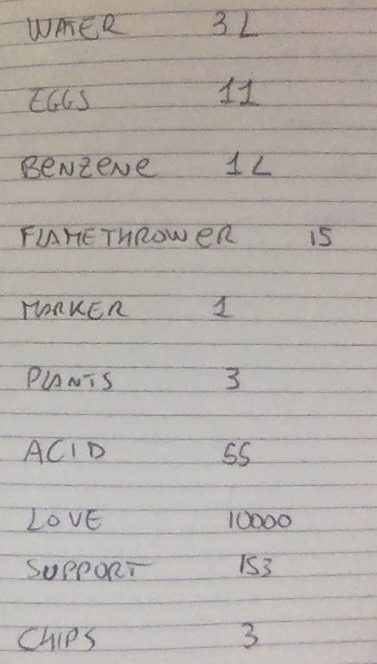 WATER 3 L
EGGS 11
BENZENE 1 L
FLAMETHROWER 15
MARKER 1
PLANTS 3
ACID 55
LOVE 10000
SUPPORT 153
CHIPS 3